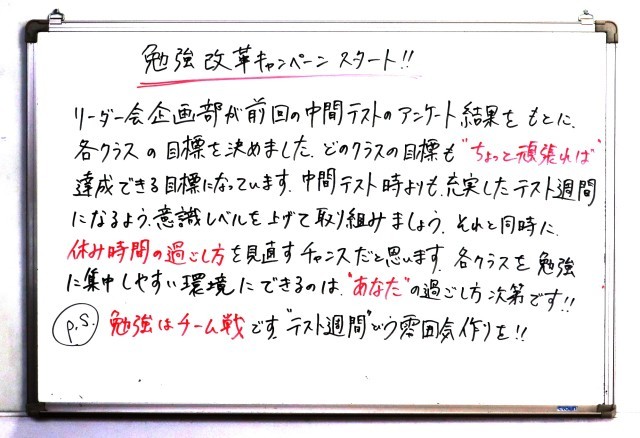 勉強改革キャンペーンスタート!!
リーダー会企画部が前回の中間テストのアンケート結果をもとに、
各クラスの目標を決めました。どのクラスの目標も"ちょっと頑張れば"
達成できる目標になっています。中間テスト時よりも、充実したテスト週間
になるよう、意識レベルを上げて取り組みましょう。それと同時に、
休み時間の過ごし方を見直すチャンスだと思います。各クラスを勉強
に集中しやすい環境にできるのは、"あなた"の過ごし方次第です!!
P.S. 勉強はチーム戦です。"テスト週間"という雰囲気作りを!!